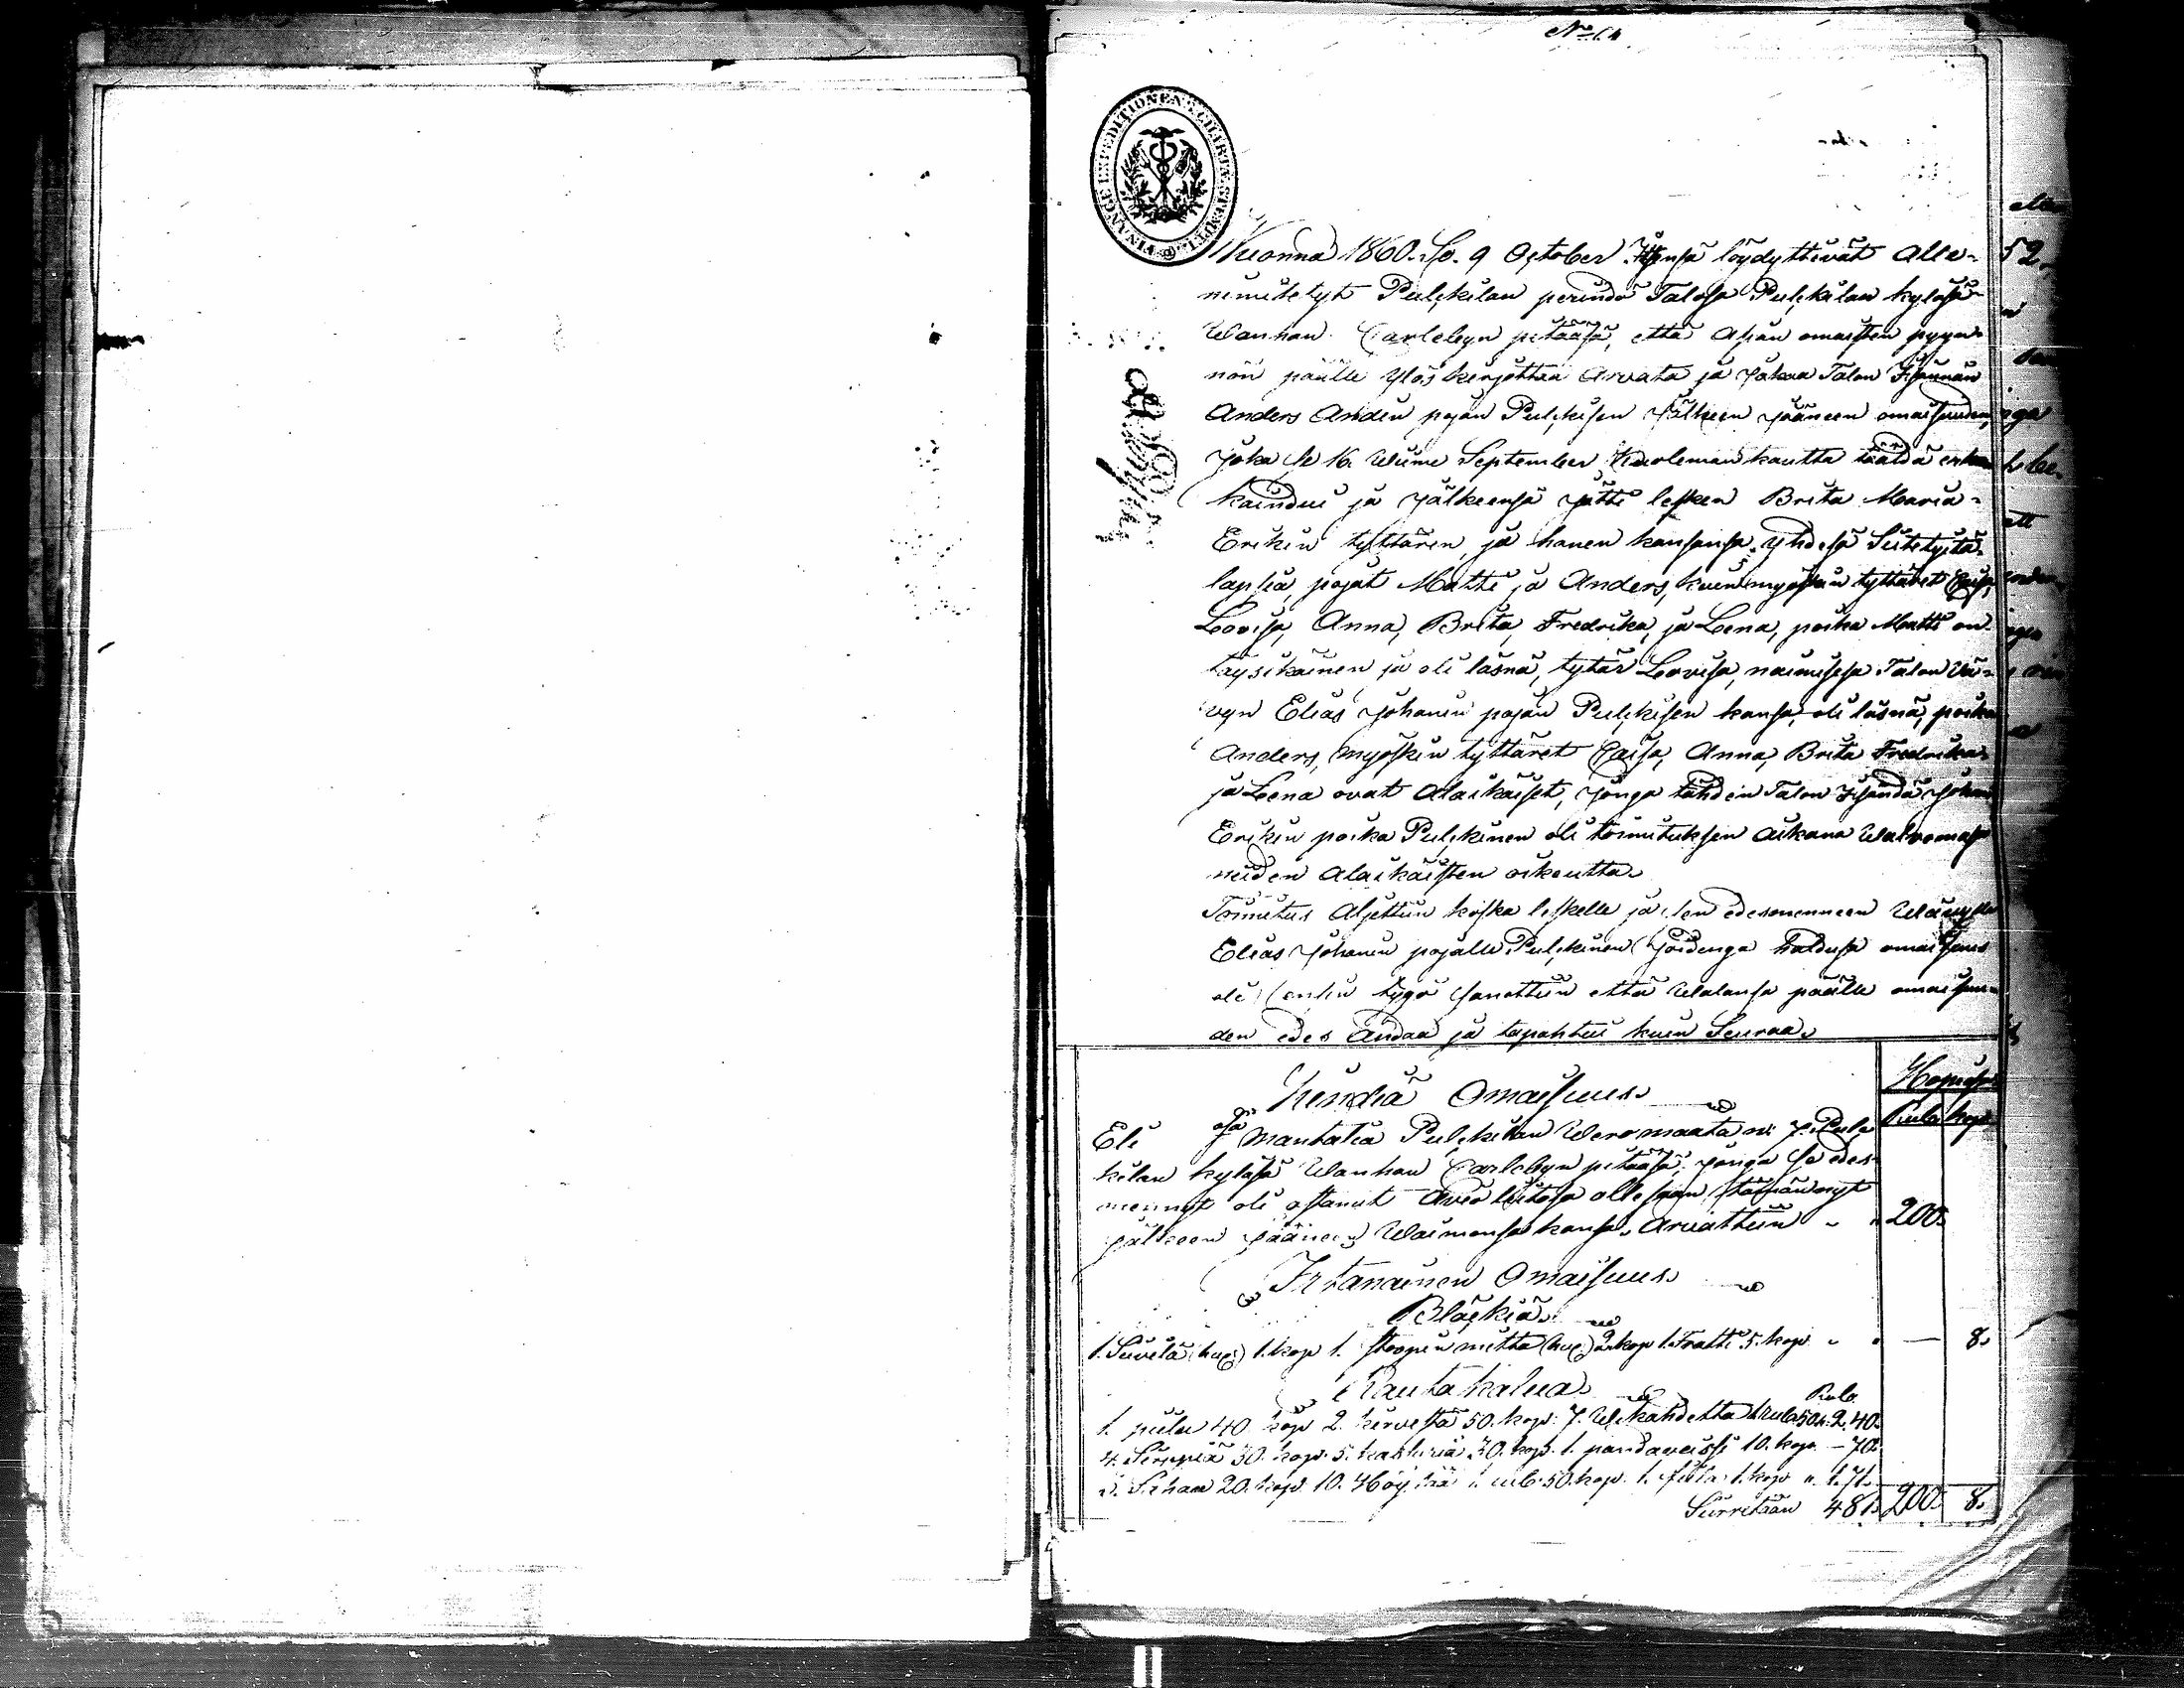 No 64
FINANCE EXPEDITIONEN. CHARTÆ. SIGILLATÆ
Vuonna 1860. Se. 9 October Itsensä löydyttivät Alle-
nimitetyt Pulckilan perindö Talosa Pulckilan kyläsä
Wanhan Carlebyn pitääsä, että Asian omaisten pyyn-
nön päälle Ylös kirjottaa Arvata ja Jakaa Talon Isännän
Anders Andin pojan Pulckisen Jälkeen Jääneen omaisuuden,
Joka se 16. Wiime September kuoleman kautta täälda erka-
kaindui ja Jälkeensä Jätti lesken Brita Maria
Erikin tyttären, ja hänen kansansa yhdesä Siitetyitä
lapsia, pojat Matti ja Anders, kuin myöskin tyttäret Caisa,
Lovisa, Anna, Brita, Fredrika, ja Leena, poika Matti on
täysikäinen ja oli läsnä, tytär Lovisa, naimisesa Talon Vä-
vyn Elias Johanin pojan Pulckisen kansa, oli läsnä, poika
Anders, myöskin tyttäret Caisa, Anna, Brita Fredrika
ja Leena ovat Alaikäiset, Jonga tähden Talon Isändä Johan
Erikin poika Pulckinen oli toimituksen Aikana Walvomasa
niiden Alaikäisten oikeutta.
Toimitus Aljettiin koska leskelle ja sen edesmenneen Wävylle
Elias Johanin pojalle Pulckinen (Joidenga haldusa omaisuus
oli) ensin tygö sanottiin että Walansa päälle omaisuu-
den edes Andaa ja tapahtui kuin Seuraa.
Hopiasa
Kiindiä Omaisuus
Rubla kop.
Eli osa Mantalia Pulckilan Weromaata No 7. Pulc-
kilan kyläsä Wanhan Carlebyn pitääsä, Jonga Se edes-
mennyt oli ostanut Avio liitosa ollesaan tämän nyt
Jälkeen Jääneen Waimonsa kansa. Arvattiin 200.
Irtanainen Omaisuus
Bläckiä.
1. Siivilä 1. kop 1. stoopin mitta 2. kop 1. Tratti 5. kop. — 8.
Rauta kalua.
Rub.
1. piilu 40 kop 2. kirvestä 50. kop: 7. Wikahdetta 1 Rub. 50 k. 2. 40.
4. Sirppiä 30. kop. 5. 30. kop. 1. pandaveissi 10. kop. – 70.
Sahaa 20. kop. 10. 1. rub. 50. kop. 1. 1. kop 1. 71.
Siirretään 4 81. 200. 8.